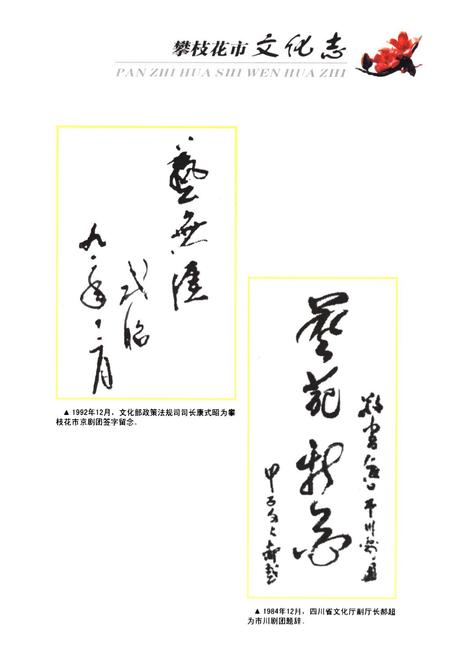 攀枝花市 文化志
PAN ZHI HUA SHI WEN HUA ZHI
藝無涯
式昭
九二年十二月
▲ 1992年12月，文化部政策法规司司长康式昭为攀
枝花市京剧团签字留念。
艺苑新容
甲子冬
▲ 1984年12月，四川省文化厅副厅长郝超
为市川剧团题辞。